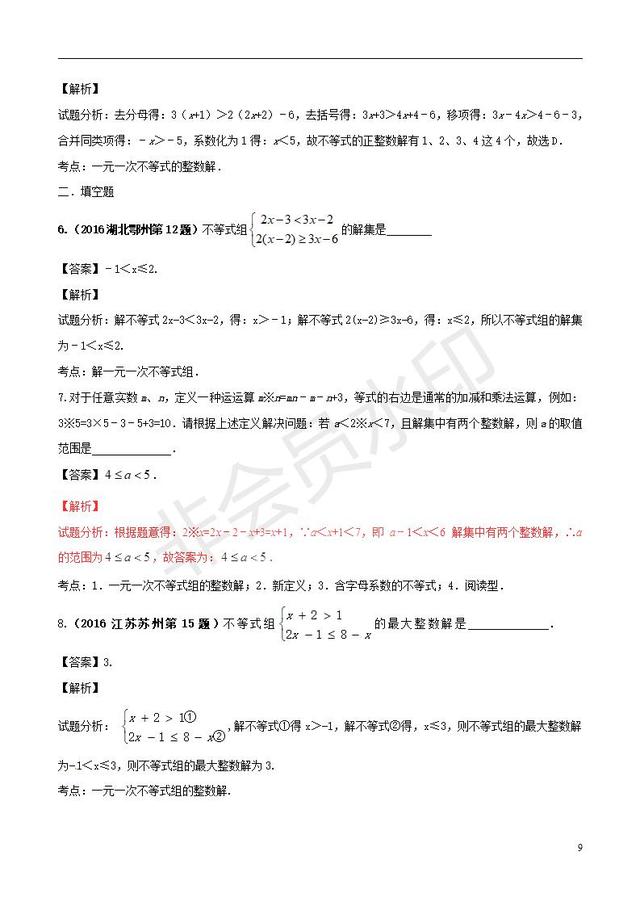 【解析】
试题分析：去分母得：3（x+1）＞2（2x+2）﹣6，去括号得：3x+3＞4x+4﹣6，移项得：3x﹣4x＞4﹣6﹣3，
合并同类项得：﹣x＞﹣5，系数化为1得：x＜5，故不等式的正整数解有1、2、3、4这4个，故选D．
考点：一元一次不等式的整数解．
二．填空题
6.（2016湖北鄂州第12题）不等式组{2x−3<3x−2 2(x−2)≥3x−6 的解集是________
【答案】﹣1＜x≤2.
【解析】
试题分析：解不等式2x-3＜3x-2，得：x＞﹣1；解不等式2(x-2)≥3x-6，得：x≤2，所以不等式组的解集
为﹣1＜x≤2.
考点：解一元一次不等式组.
7.对于任意实数m、n，定义一种运运算m※n=mn﹣m﹣n+3，等式的右边是通常的加减和乘法运算，例如：
3※5=3×5﹣3﹣5+3=10．请根据上述定义解决问题：若a＜2※x＜7，且解集中有两个整数解，则a的取值
范围是______________．
【答案】4≤a<5．
【解析】
试题分析：根据题意得：2※x=2x﹣2﹣x+3=x+1，∵a＜x+1＜7，即 a﹣1＜x＜6 解集中有两个整数解，∴a
的范围为4≤a<5，故答案为：4≤a<5．
考点：1．一元一次不等式组的整数解；2．新定义；3．含字母系数的不等式；4．阅读型．
8.（2016江苏苏州第15题）不等式组{x+2>1 2x−1≤8−x 的最大整数解是______________．
【答案】3.
【解析】
试题分析：{x+2>1① 2x−1≤8−x②,解不等式①得x＞-1，解不等式②得，x≤3，则不等式组的最大整数解
为-1＜x≤3，则不等式组的最大整数解为3.
考点：一元一次不等式组的整数解.
9
非会员水印